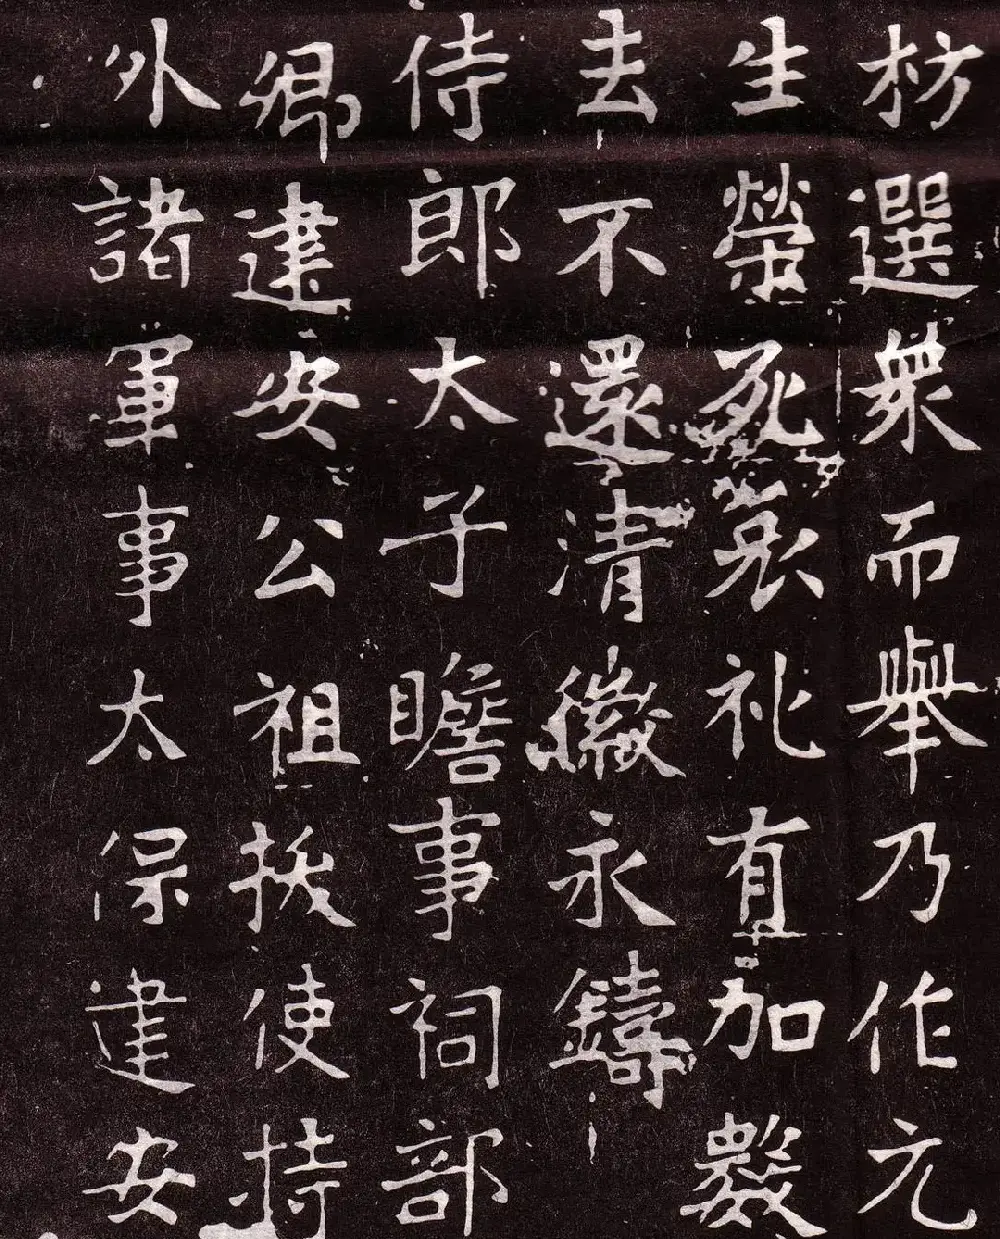 枋選眾而舉乃作元
生榮死哀礼有加數
去不還清徽永鑄
侍郎太子瞻事祠部
卿建安公祖使持
外諸軍事太保建安